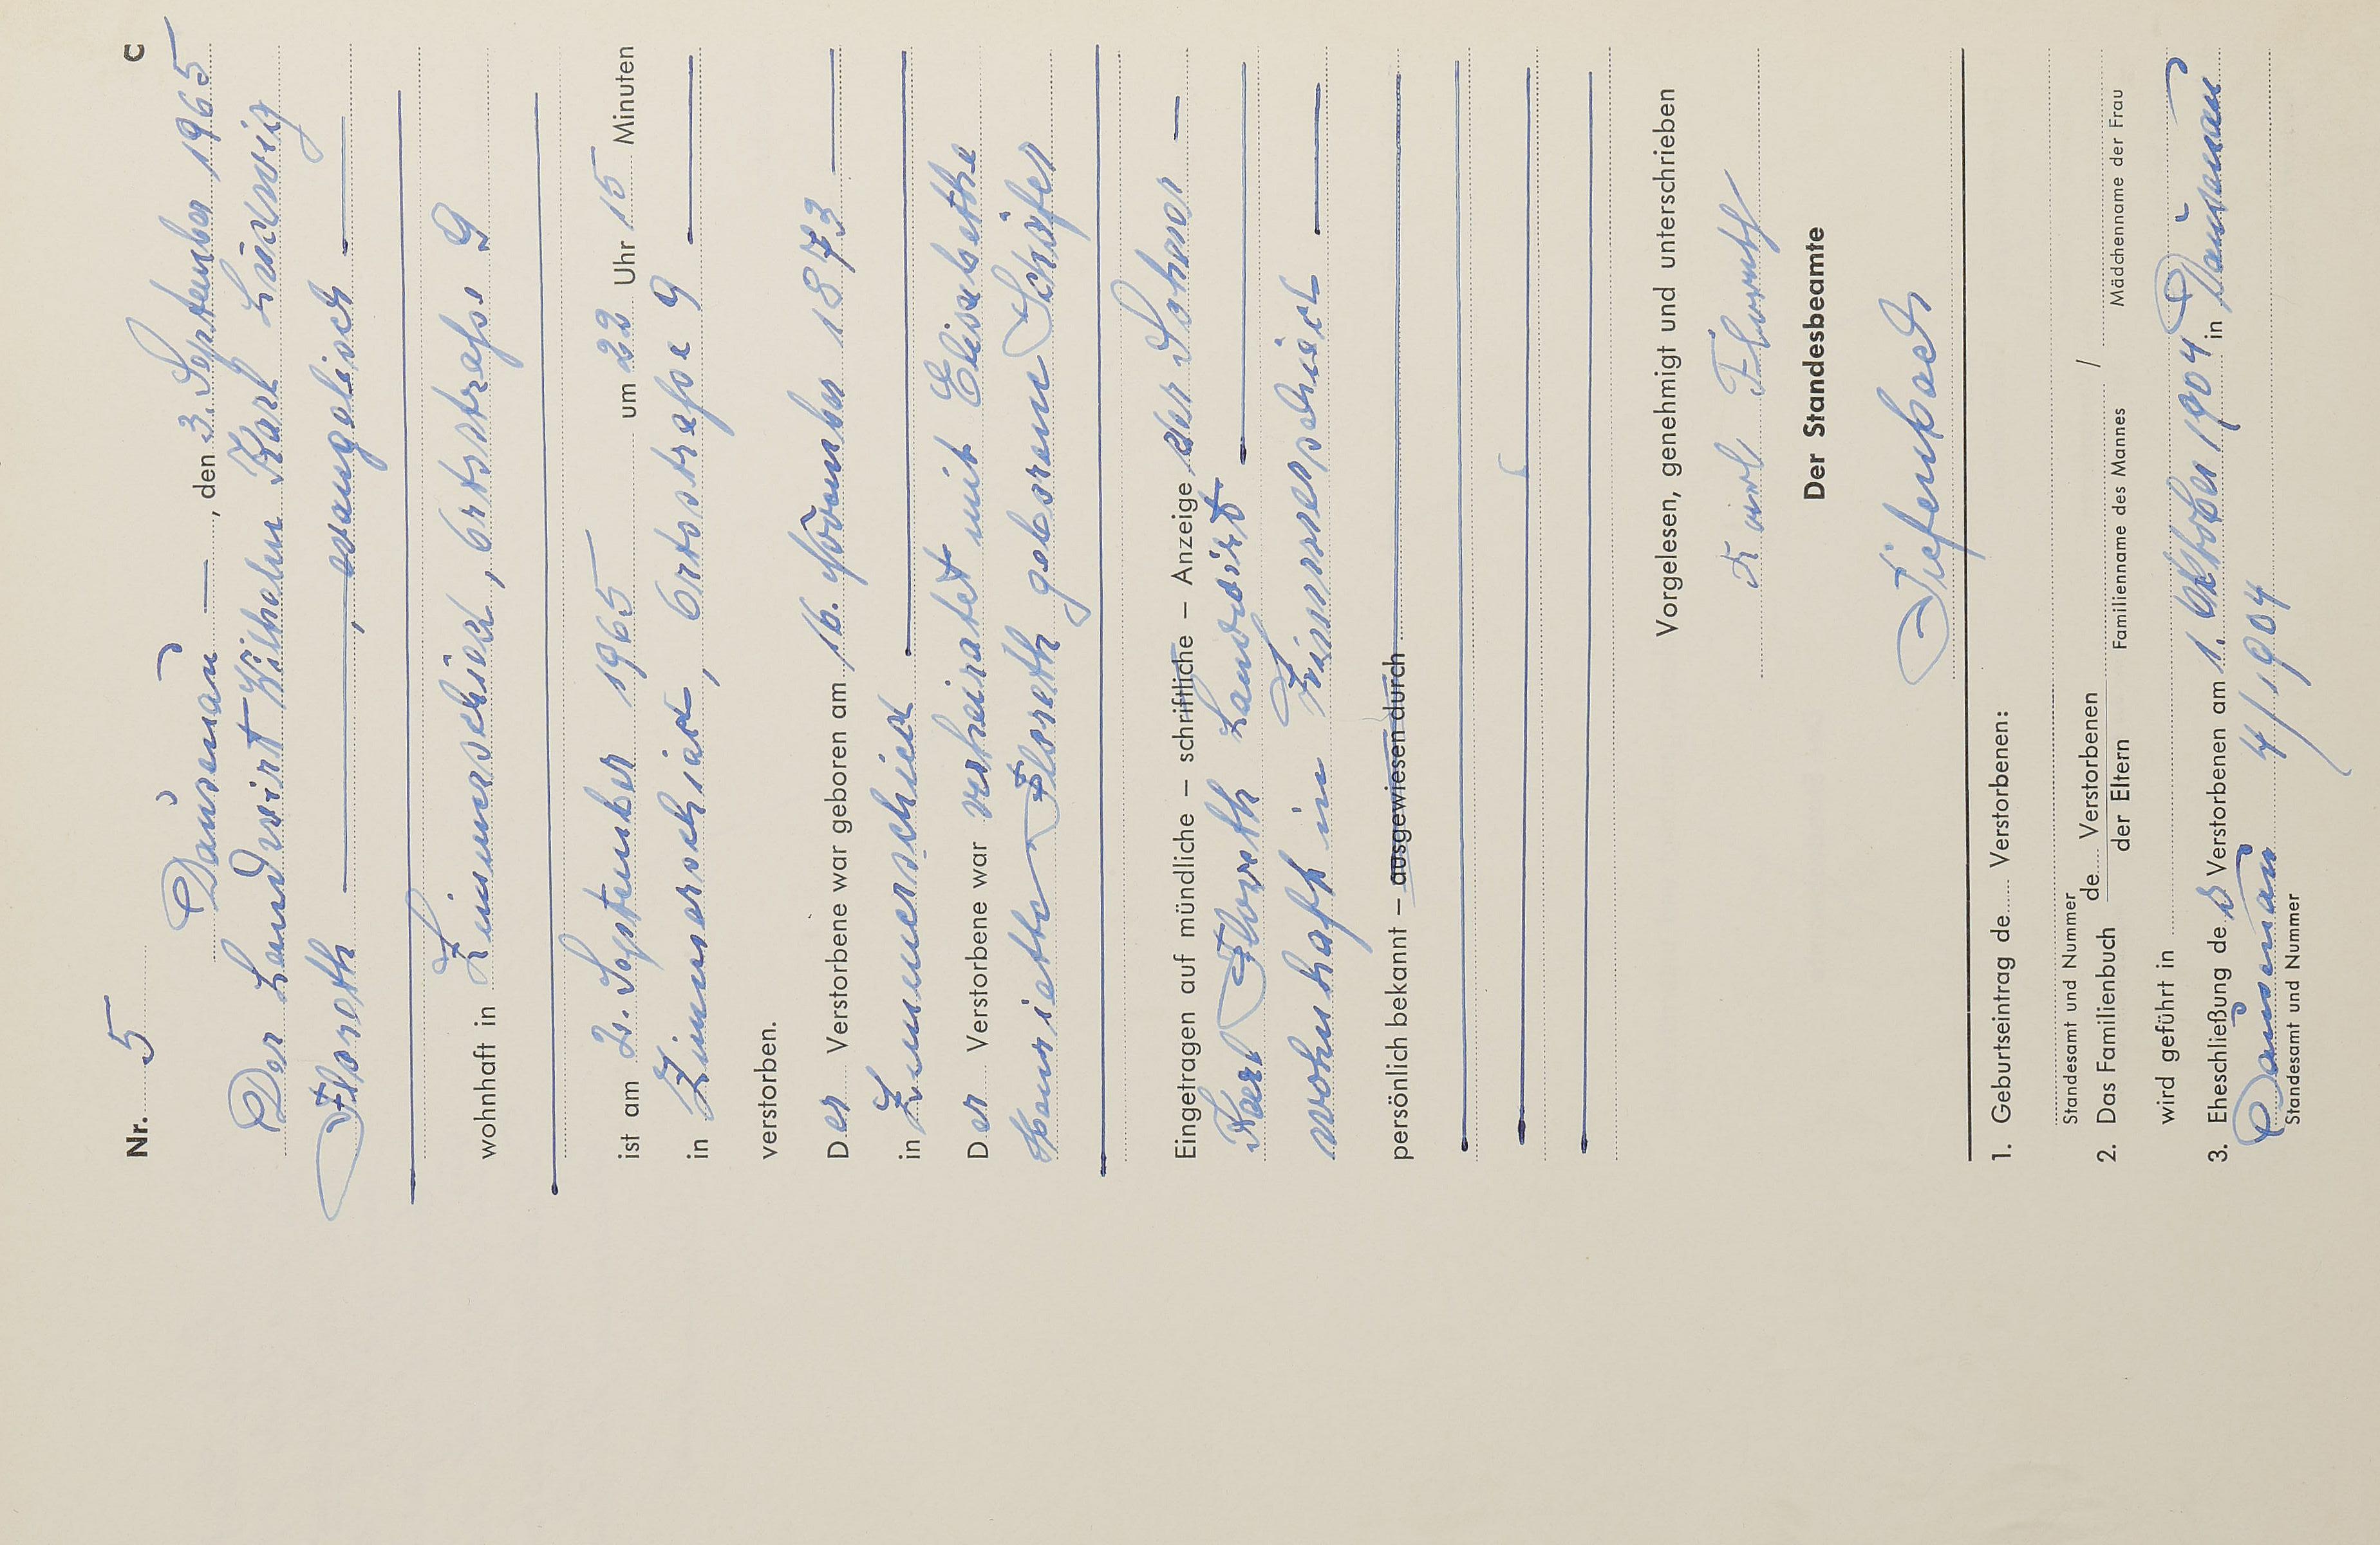 C
Nr. 5
Dausenau —, den 3. September 1965
Der Landwirt Wilhelm Karl Ludwig
Floreth —, evangelisch —
wohnhaft in Zimmerschied, Ortsstraße 9
ist am 2. September 1965 um 22 Uhr 15 Minuten
in Zimmerschied, Ortsstraße 9 —
verstorben.
Der Verstorbene war geboren am 16. November 1873 —
in Zimmerschied —
Der Verstorbene war verheiratet mit Elisabethe
Henriette Floreth geborene Schäfer
Eingetragen auf mündliche – schriftliche – Anzeige des Sohnes —
Karl Floreth Landwirt —
wohnhaft in Zimmerschied —
persönlich bekannt – ausgewiesen durch
Vorgelesen, genehmigt und unterschrieben
Karl Floreth
Der Standesbeamte
Tiefenbach
1. Geburtseintrag de Verstorbenen:
Standesamt und Nummer
2. Das Familienbuch de Verstorbenen der Eltern /
Familienname des Mannes Mädchenname der Frau
wird geführt in
3. Eheschließung des Verstorbenen am 1. Oktober 1904 in Dausenau
Dausenau 4/1904
Standesamt und Nummer